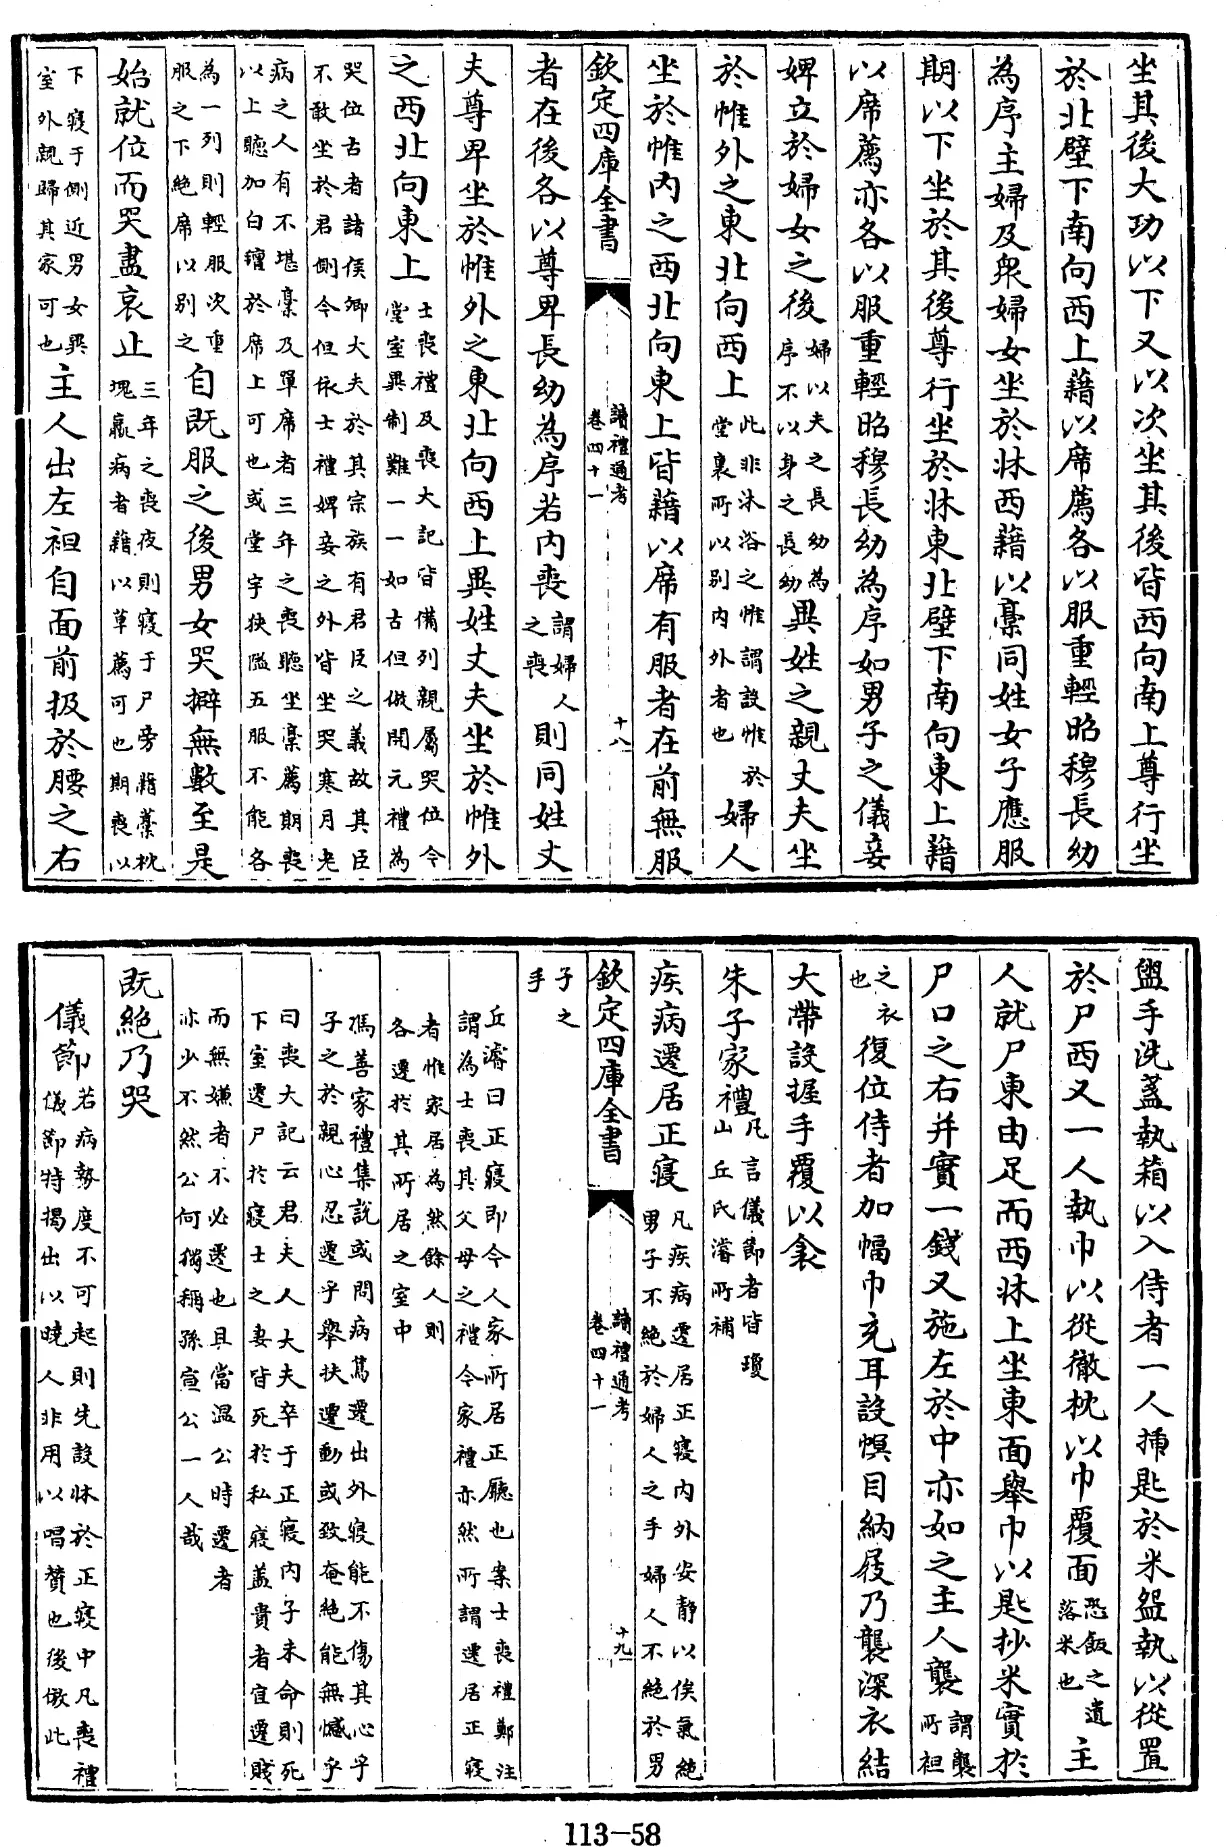 坐其後大功以下又以次坐其後皆西向南上尊行坐
於北壁下南向西上藉以席薦各以服重輕昭穆長幼
為序主婦及衆婦女坐於牀西藉以藁同姓女子應服
期以下坐於其後尊行坐於牀東北壁下南向東上藉
以席薦亦各以服重輕昭穆長幼為序如男子之儀妾
婢立於婦女之後婦以夫之長幼為序不以身之長幼異姓之親丈夫坐
於帷外之東北向西上此非沐浴之帷謂設帷於堂裏所以别内外者也婦人
坐於帷内之西北向東上皆藉以席有服者在前無服
欽定四庫全書
讀禮通考
卷四十一
十八
者在後各以尊卑長幼為序若内喪謂婦人之喪則同姓丈
夫尊卑坐於帷外之東北向西上異姓丈夫坐於帷外
之西北向東上士喪禮及喪大記皆備列親屬哭位今堂室異制難一一如古但倣開元禮為
哭位古者諸侯卿大夫於其宗族有君臣之義故其臣
不敢坐於君側今但依士禮婢妾之外皆坐哭寒月老
病之人有不堪藁及單席者三年之喪聽坐藁薦期喪
以上聽加白氊於席上可也或堂宇狹隘五服不能各
為一列則輕服次重服之下絶席以别之自既服之後男女哭擗無數至是
始就位而哭盡哀止三年之喪夜則寢于尸旁藉藁枕塊羸病者藉以草薦可也期喪以
下寢于側近男女異室外親歸其家可也主人出左袒自面前扱於腰之右
盥手洗盞執箱以入侍者一人揷匙於米盌執以從置
於尸西又一人執巾以從徹枕以巾覆面恐飯之遺落米也主
人就尸東由足而西牀上坐東面舉巾以匙抄米實於
尸口之右并實一錢又施左於中亦如之主人襲謂襲所袒
之衣也復位侍者加幅巾充耳設幎目納屐乃襲深衣結
大帶設握手覆以衾
朱子家禮凡言儀節者皆瓊山丘氏濬所補
疾病遷居正寢凡疾病遷居正寢内外安靜以俟氣絶男子不絶於婦人之手婦人不絶於男
欽定四庫全書
讀禮通考
卷四十一
十九
子之手
丘濬曰正寢即今人家所居正廳也案士喪禮鄭注
謂為士喪其父母之禮今家禮亦然所謂遷居正寢
者惟家居為然餘人則
各遷於其所居之室中
馮善家禮集説或問病篤遷出外寢能不傷其心乎
子之於親心忍遷乎舉扶遷動或致奄絶能無憾乎
曰喪大記云君夫人大夫卒于正寢内子未命則死
下室遷尸於寢士之妻皆死於私寢盖貴者宜遷賤
而無嫌者不必遷也且當温公時遷者
亦少不然公何獨稱孫宣公一人哉
既絶乃哭
儀節若病勢度不可起則先設牀於正寢中凡喪禮儀節特揭出以曉人非用以唱贊也後倣此
113-58